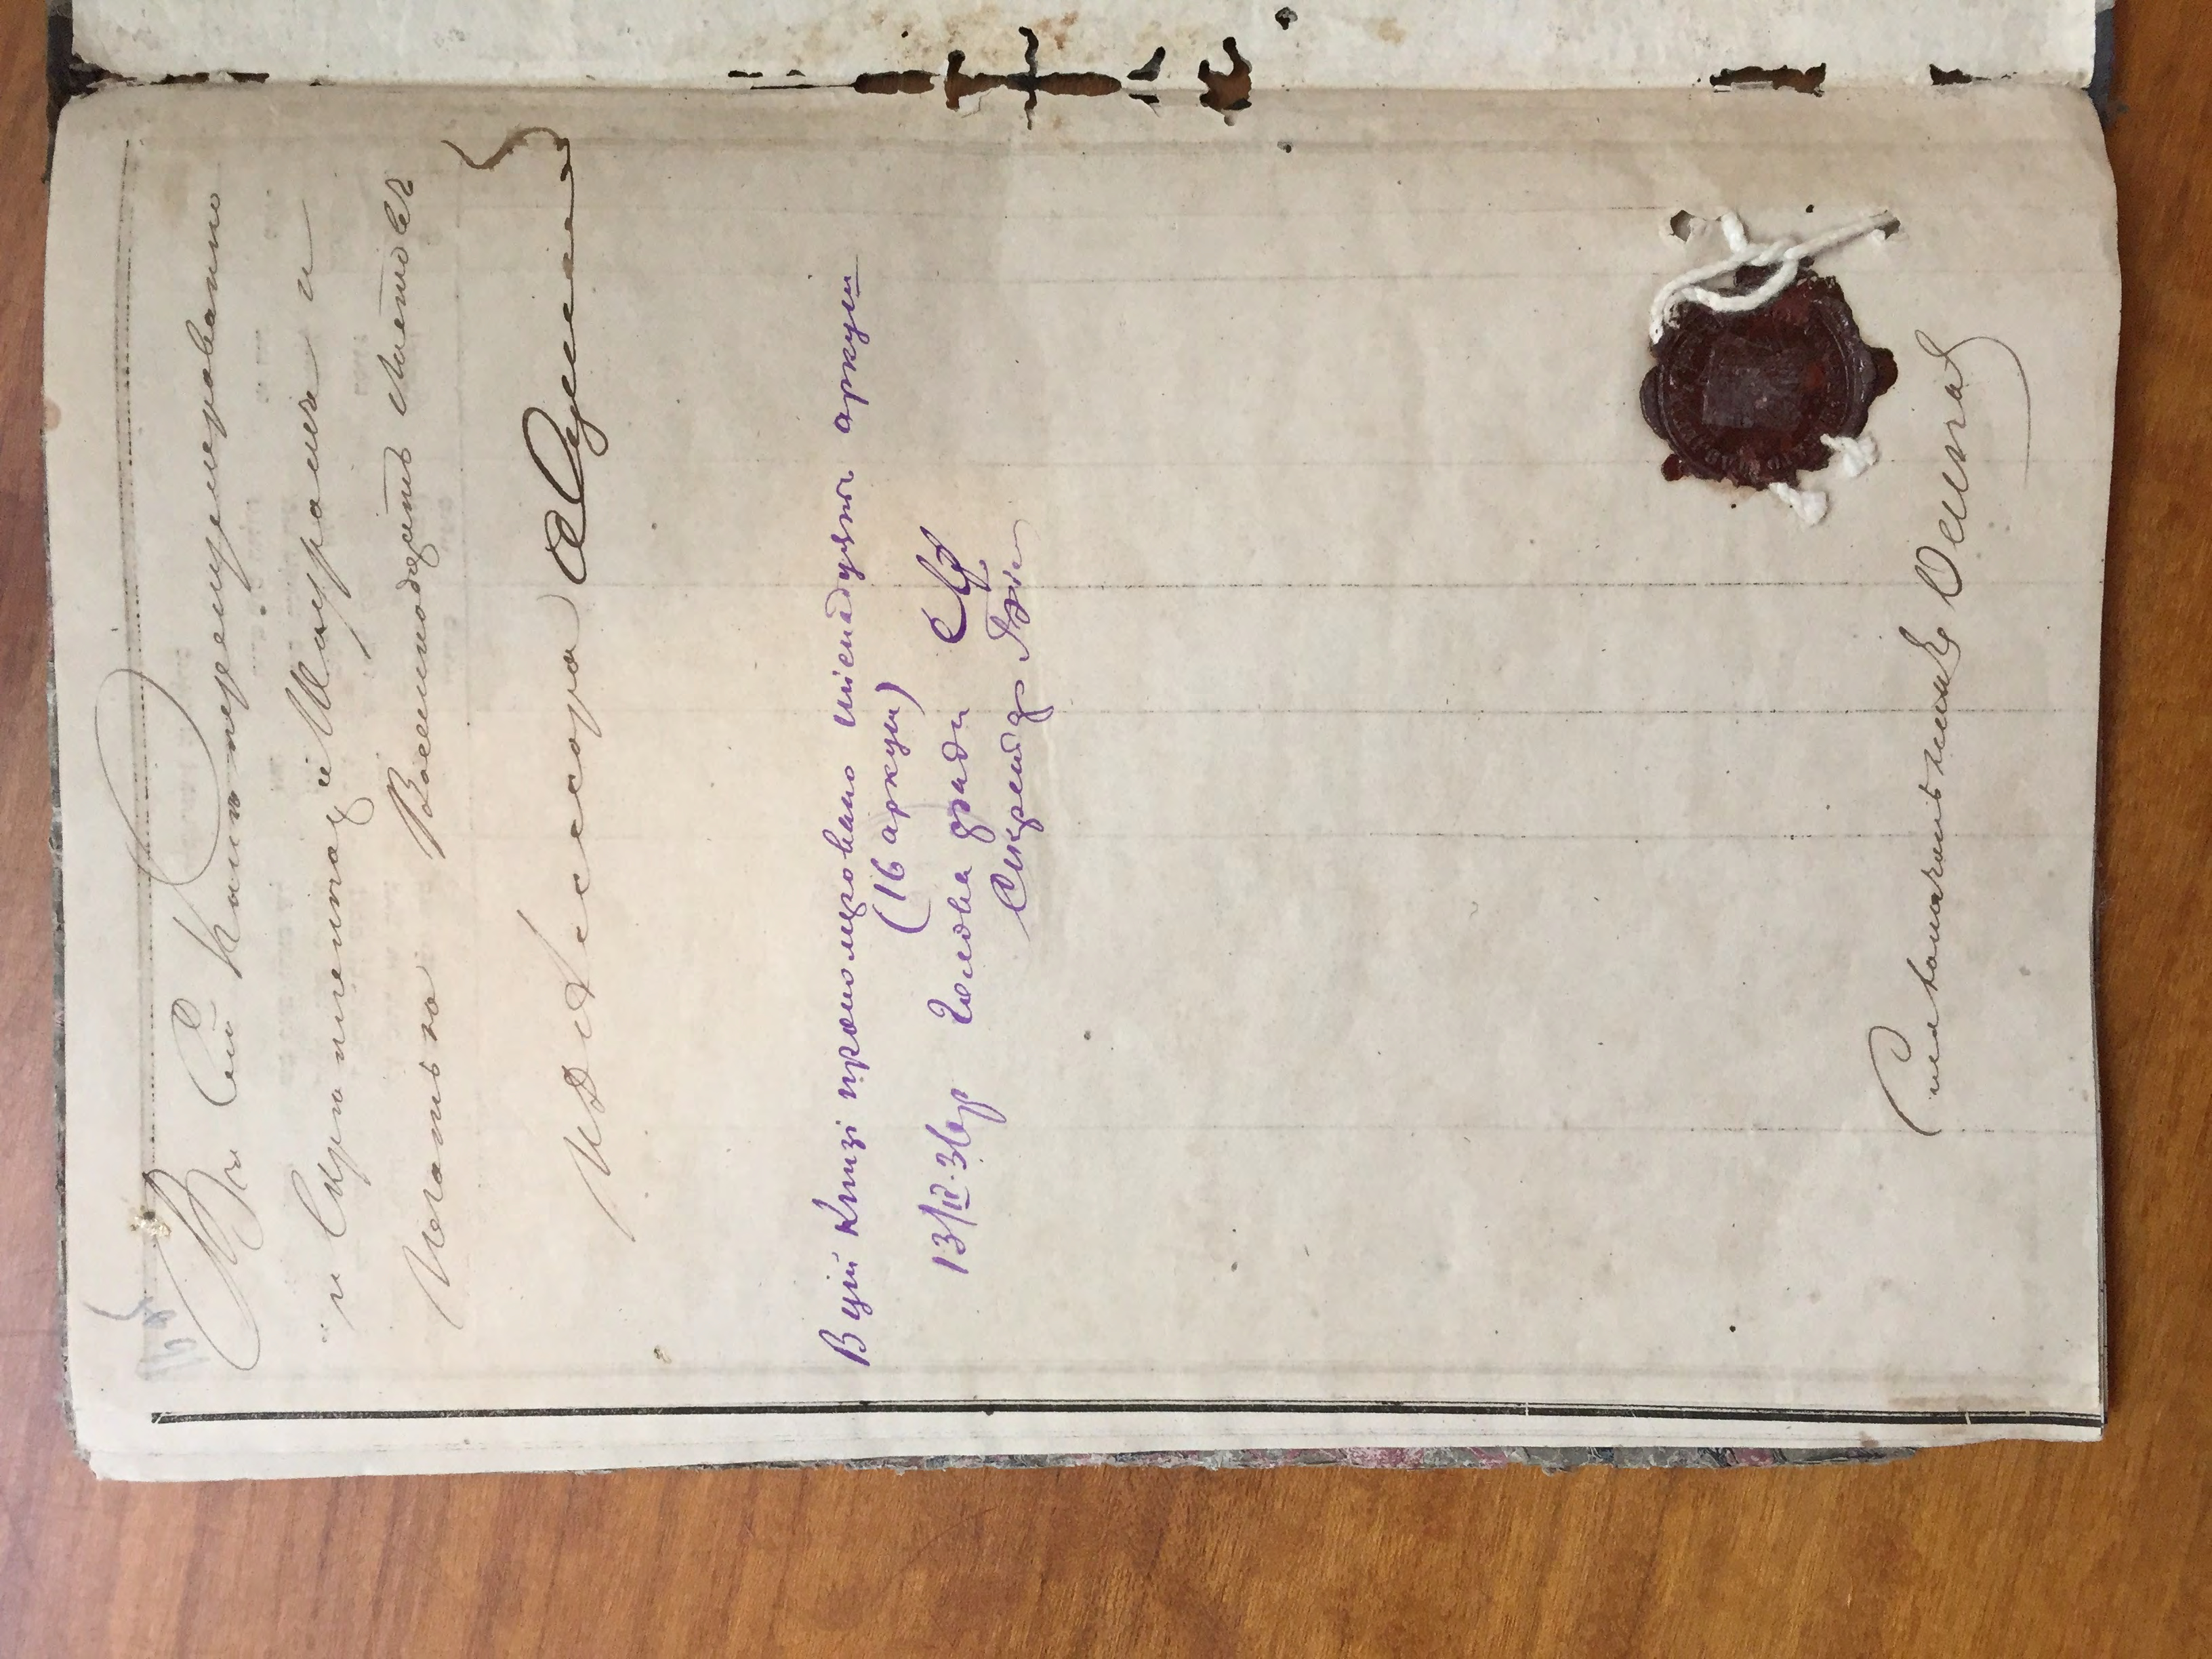 Въ сей книге пренумеровано
и скрепленою шнуромъ и
печатью Восемнодцать листовъ
Ассесоръ
В цій книзі пронумеровано шіснадцять аркуш
(16 аркуш)
13/IV-36р Голова с/ради
Секретар
Столоначальникъ